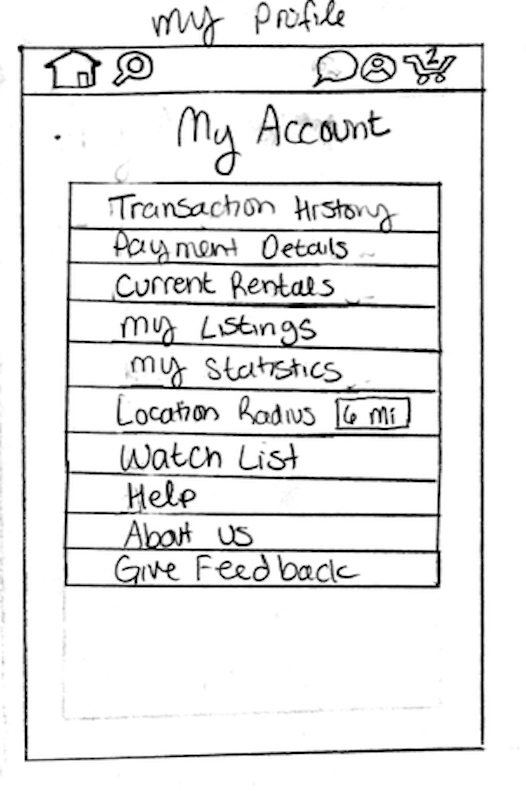 My Profile
2
My Account
Transaction History
Payment Details
Current Rentals
My Listings
My Statistics
Location Radius 6 mi
Watch List
Help
About us
Give Feedback